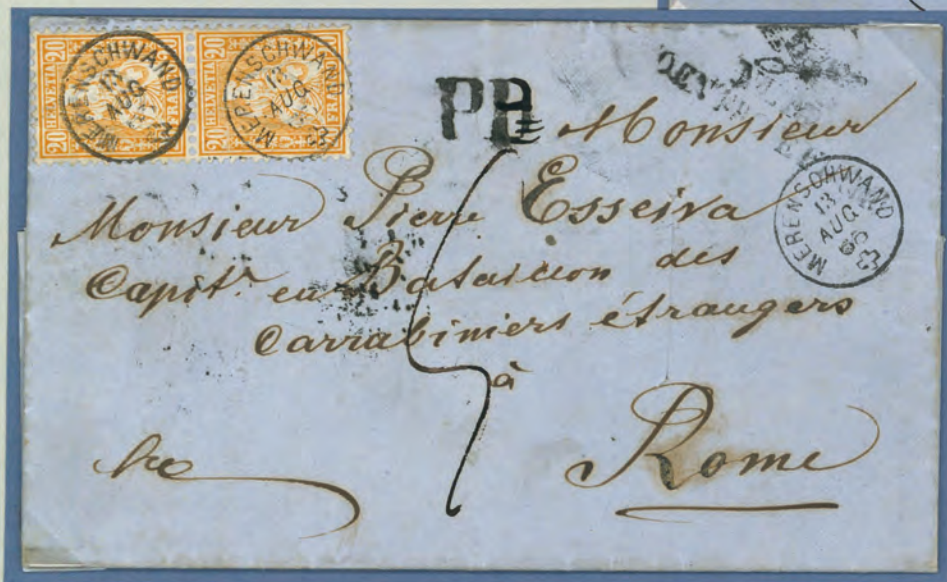 20 HELVETIA 20 FRANCO
20 HELVETIA 20 FRANCO
MERENSCHWAND
13
AUG
MERENSCHWAND
13
AUG
PD
MERENSCHWAND
13
AUG
66
Monsieur
Monsieur Pierre Esseiva
Capit. en Bataillon des
Carrabiniers étrangers
à
Rome